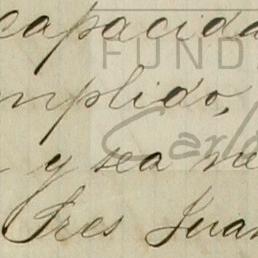 capacida
mplido,
y sea ve
Sres Juan
FUND
Carlo